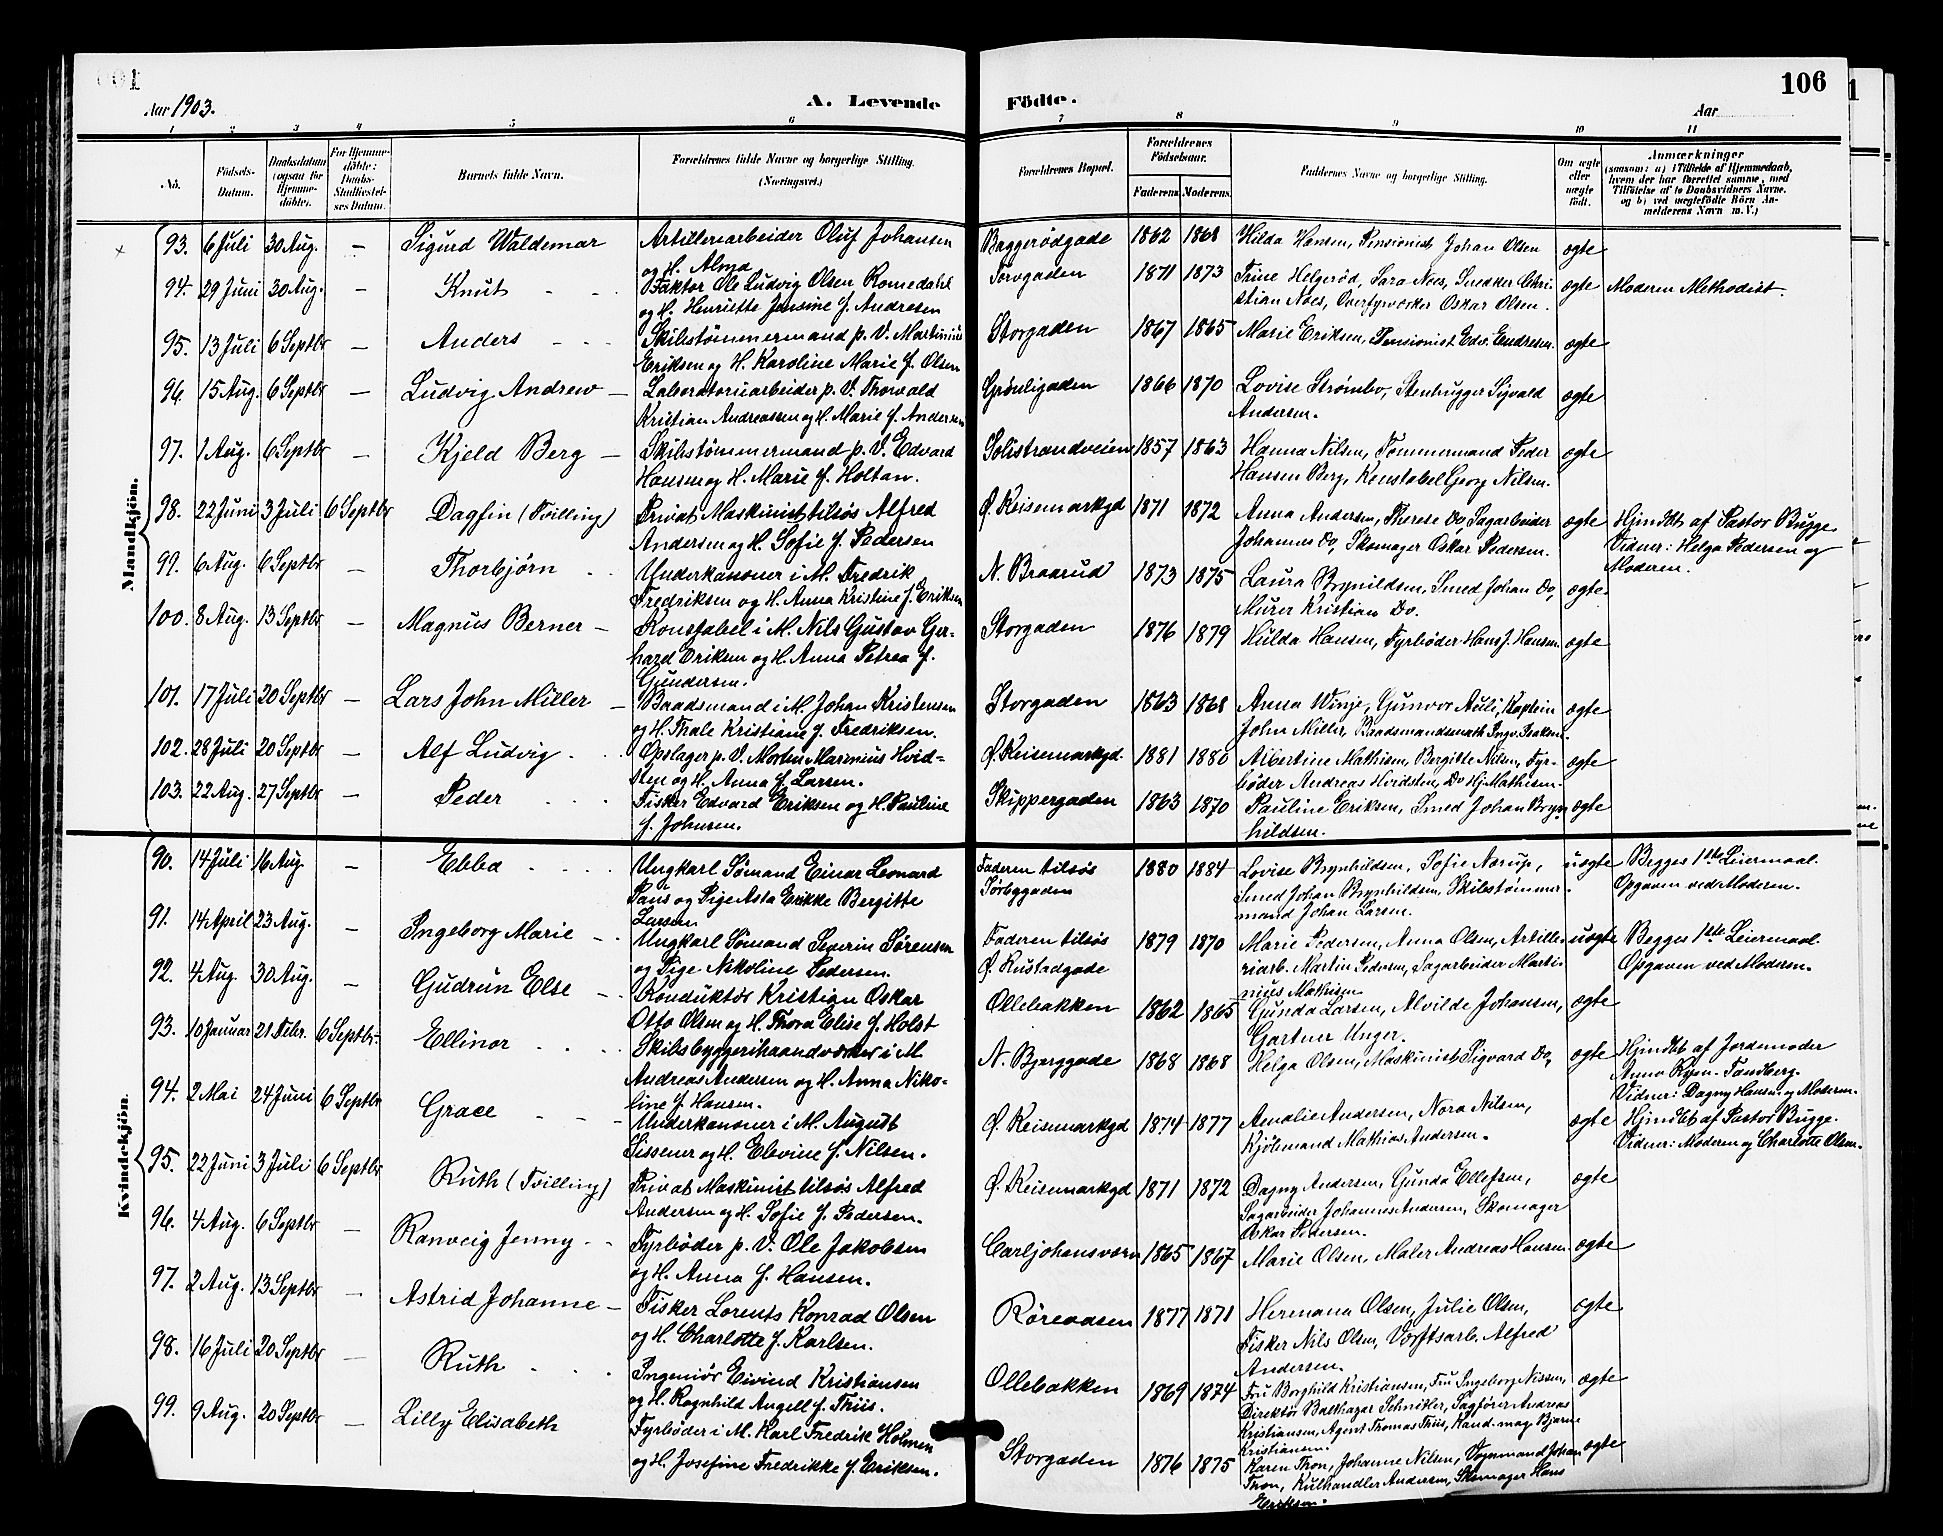 106
Aar 1903.
A. Levende Födte.
Aar
1 2 3 4 5 6 7 8 9 10 11
No.
Födsels-Datum.
Daabsdatum (ogsaa for Hjemme-döbte).
For Hjemme-döbte: Daabs-Stadfæstel-ses Datum.
Barnets fulde Navn.
Forældrenes fulde Navne og borgerlige Stilling. (Næringsvei.)
Forældrenes Bopæl.
Forældrenes Födselsaar.
Faderens Moderens
Faddernes Navne og borgerlige Stilling.
Om ægte eller uægte födt.
Anmærkninger
(saasom: a) i Tilfælde af Hjemmedaab, hvem der har forrettet samme, med Tilföielse af to Daabsvidners Navne, og b) ved uægtefödte Börn An-melderens Navn m. V.)
Mandkjön.
93. 6 Juli 30 Aug. — Sigurd Waldemar Artilleriarbeider Oluf Johansen og H. Alma Baggerødgade 1862 1868 Hilda Hansen, Pensionist Johan Olsen ægte
94. 29 Juni 30 Aug. — Knut Faktor Ole Ludvig Olsen Romedahl og H. Henriette Jensine f. Andresen Torvgaden 1871 1873 Trine Helgerød, Sara Noes, Snedker Christian Noes, Overfyrvoerker Oskar Olsen. ægte Moderen Methodist.
95. 13 Juli 6 Septbr — Anders Skibstømmermand p. V. Martinius Eriksen og H. Karoline Marie f. Olsen Storgaden 1867 1865 Marie Eriksen, Pensionist Edv. Endresen ægte
96. 15 Aug. 6 Septbr — Ludvig Andrew — Laboratoriearbeider p. V. Thorvald Kristian Andreassen og H. Marie f. Andersen Grønligaden 1866 1870 Lovise Strømbo, Stenhugger Sigvald Andersen. ægte
97. 1 Aug. 6 Septbr — Kjeld Berg — Skibstømmermand p. V. Edvard Hansen og H. Marie f. Holtan. Solistrandveien 1857 1863 Hanna Nilsen, Tømmermand Peder Hansen Berg, Konstabel Georg Nilsen. ægte
98. 22 Juni 3 Juli 6 Septbr Dagfin (Tvilling) Privat Maskinist tilsøs Alfred Andersen og H. Sofie f. Pedersen Ø. Keisemarkgd 1871 1872 Anna Andersen, Therese Do, Sagarbeider Johannes Do, Skomager Oskar Pedersen. ægte Hjmdbt. af Pastor Bugge. Vidner: Helga Pedersen og Moderen.
99. 6 Aug. 6 Septbr — Thorbjørn Underkanoner i M. Fredrik Fredriksen og H. Anna Kristine f. Eriksen N. Braarud 1873 1875 Laura Brynildsen, Smed Johan Do, Murer Kristian Do. ægte
100. 8 Aug. 13 Septbr — Magnus Berner — Konstabel i M. Nils Gustav Gerhard Eriksen og H. Anna Petrea f. Gundersen. Storgaden 1876 1879 Hulda Hansen, Fyrbøder Hans J. Hansen ægte
101. 17 Juli 20 Septbr — Lars John Miller — Baadsmand i M. Johan Kristensen og H. Thale Kristiane f. Fredriksen. Storgaden 1863 1868 Anna Winje, Gunvor Auli, Kaptein John Miller, Baadsmandsmath Ingv. Isaksen. ægte
102. 28 Juli 20 Septbr — Alf Ludvig Opslager p. V. Morten Marinius Hvidsten og H. Anna f. Larsen. Ø. Keisemarkgd. 1881 1880 Albertine Mathisen, Bergitte Nilsen, Fyrbøder Andreas Hvidsten, Do Hj. Mathisen. ægte
103. 22 Aug. 27 Septbr — Peder Fisker Edvard Eriksen og H. Pauline f. Johnsen. Skippergaden 1863 1870 Pauline Eriksen, Smed Johan Brynhildsen. ægte
Kvindekjön.
90. 14 Juli 16 Aug. — Ebba Ungkarl Sømand Einar Leonard Paus og Pige Asta Erikke Bergitte Larsen Faderen tilsøs Sørbygaden 1880 1884 Lovise Brynhildsen, Sofie Nærup, Smed Johan Brynhildsen, Skibstømmermand Johan Larsen. uægte Begges 1ste Leiermaal. Opgaven ved Moderen.
91. 14 April 23 Aug. — Ingeborg Marie Ungkarl Sømand Severin Sørensen og Pige Nikoline Pedersen. Faderen tilsøs Ø. Rustadgade 1879 1870 Marie Pedersen, Anna Olsen, Artilleriarb. Martin Pedersen, Sagarbeider Martinius Mathisen. uægte Begges 1ste Leiermaal. Opgaven ved Moderen.
92. 4 Aug. 30 Aug. — Gudrun Else Konduktør Kristian Oskar Otto Olsen og H. Thora Elise f. Holst Ollebakken 1862 1865 Gunda Larsen, Alvilde Johansen, Gartner Unger. ægte
93. 10 Januar 21 Febr. 6 Septbr. Ellinor Skibsbyggerihaandværker i M Andreas Andersen og H. Anna Nikoline f. Hansen. N. Bjerggade 1868 1868 Helga Olsen, Maskinist Sigvard Do, ægte Hjmdbt af Jordemoder Anna Tandberg. Vidner: Dagny Hansen og Moderen.
94. 2 Mai 24 Juni 6 Septbr Grace Underkanoner i M. August Sissener og H. Elevine f. Nilsen. Ø. Keisemarkgd 1874 1877 Amalie Andersen, Nora Nilsen, Kjöbmand Mathias Andersen. ægte Hjmdbt af Pastor Bugge. Vidner: Moderen og Charlotte Olsen.
95. 22 Juni 3 Juli 6 Septbr Ruth (Tvilling) Privat Maskinist tilsøs Alfred Andersen og H. Sofie f. Pedersen. Ø. Keisemarkgd 1871 1872 Dagny Andersen, Gunda Ellefsen, Sagarbeider Johannes Andersen, Skomager Oskar Pedersen. ægte
96. 4 Aug. 6 Septbr — Ranveig Jenny Fyrbøder p. V. Ole Jakobsen og H. Anna f. Hansen. Carljohansværn 1865 1867 Marie Olsen, Maler Andreas Hansen ægte
97. 2 Aug. 13 Septbr — Astrid Johanne — Fisker Lorents Konrad Olsen og H. Charlotte f. Karlsen. Røreaasen 1877 1871 Hermana Olsen, Julie Olsen, Fisker Nils Olsen, Værftsarb. Alfred Andersen. ægte
98. 16 Juli 20 Septbr — Ruth Ingeniør Eivind Kristiansen og H. Ragnhild Angell f. Thiis. Ollebakken 1869 1874 Fru Borghild Kristiansen, Fru Ingeborg Nissen, Direktør Balthazar Schnitler, Sagfører Andreas Kristiansen, Agent Thomas Thiis, Kand. mag. Bjarne Kristiansen. ægte
99. 9 Aug. 20 Septbr — Lilly Elisabeth Fyrbøder i M. Karl Fredrik Holmen og H. Josefine Fredrikke f. Eriksen. Storgaden 1876 1875 Karen Thon, Johanne Nilsen, Vognmand Johan Thon, Kulhandler Andersen, Skomager Hans Eriksen. ægte